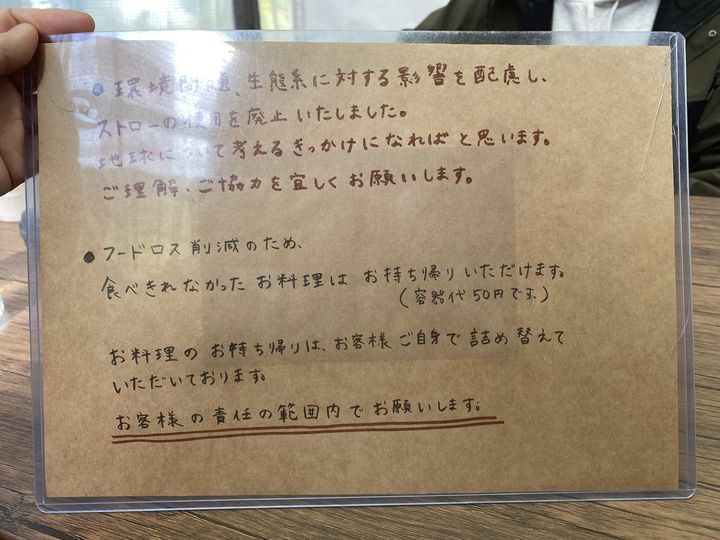 ● 環境問題、生態系に対する影響を配慮し、
ストローの使用を廃止いたしました。
地球について考えるきっかけになればと思います。
ご理解・ご協力を宜しくお願いします。
● フードロス削減のため、
食べきれなかったお料理はお持ち帰りいただけます。
(容器代50円です。)
お料理のお持ち帰りは、お客様ご自身で詰め替えて
いただいております。
お客様の責任の範囲内でお願いします。